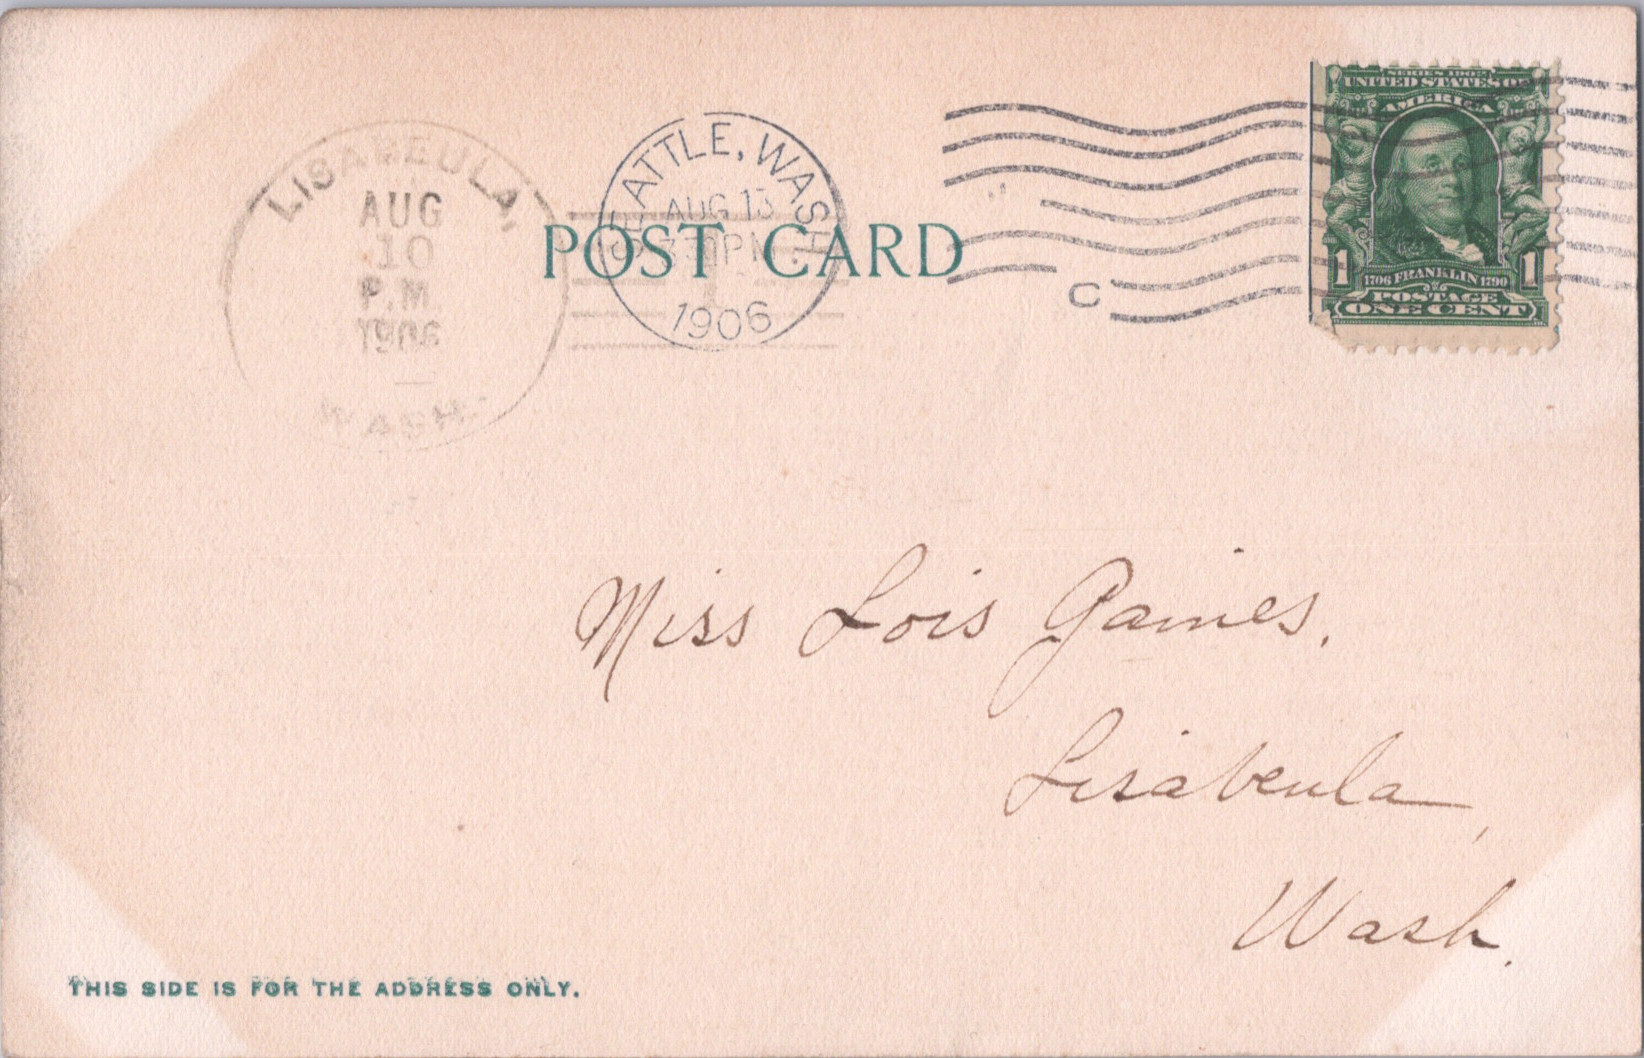 LISABEULA,
AUG
10
P.M
1906
WASH.
SEATTLE, WASH.
AUG 13
730PM
1906
C
POST CARD
SERIES 1902
UNITED STATES OF
AMERICA
1 1706 FRANKLIN 1790 1
POSTAGE
ONE CENT
Miss Lois Gaines.
Lisabeula,
Wash.
THIS SIDE IS FOR THE ADDRESS ONLY.